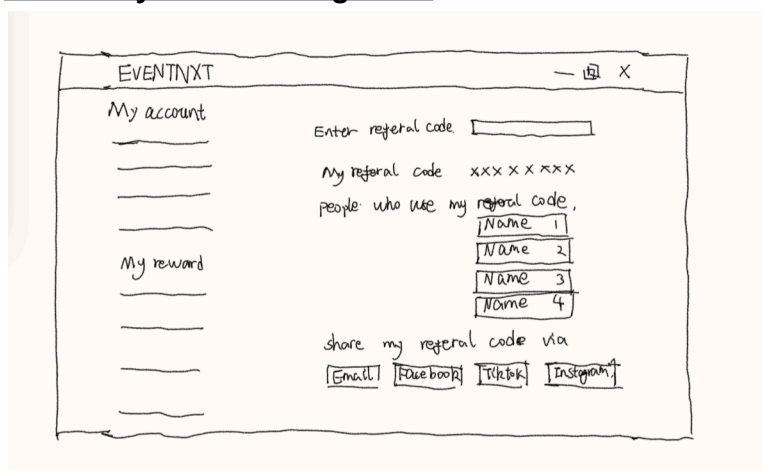 EVENTNXT
My account
Enter referal code
My referal code xxxxxxxx
people who use my referal code,
Name 1
Name 2
Name 3
Name 4
My reward
share my referal code via
Email Facebook Tiktok Instagram